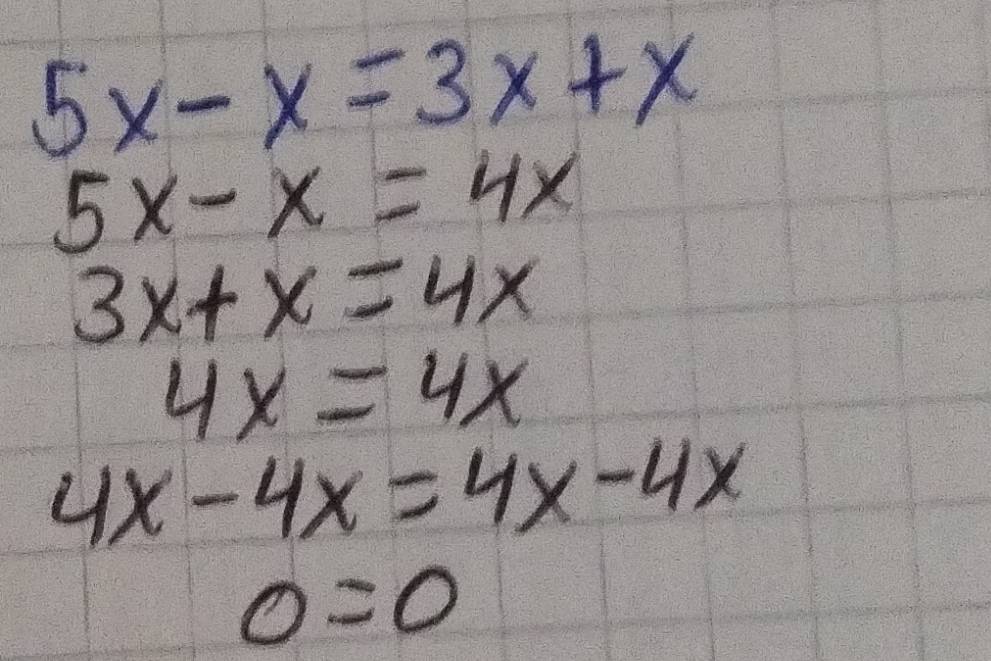 5x - x = 3x + x
5x - x = 4x
3x + x = 4x
4x = 4x
4x - 4x = 4x - 4x
0 = 0